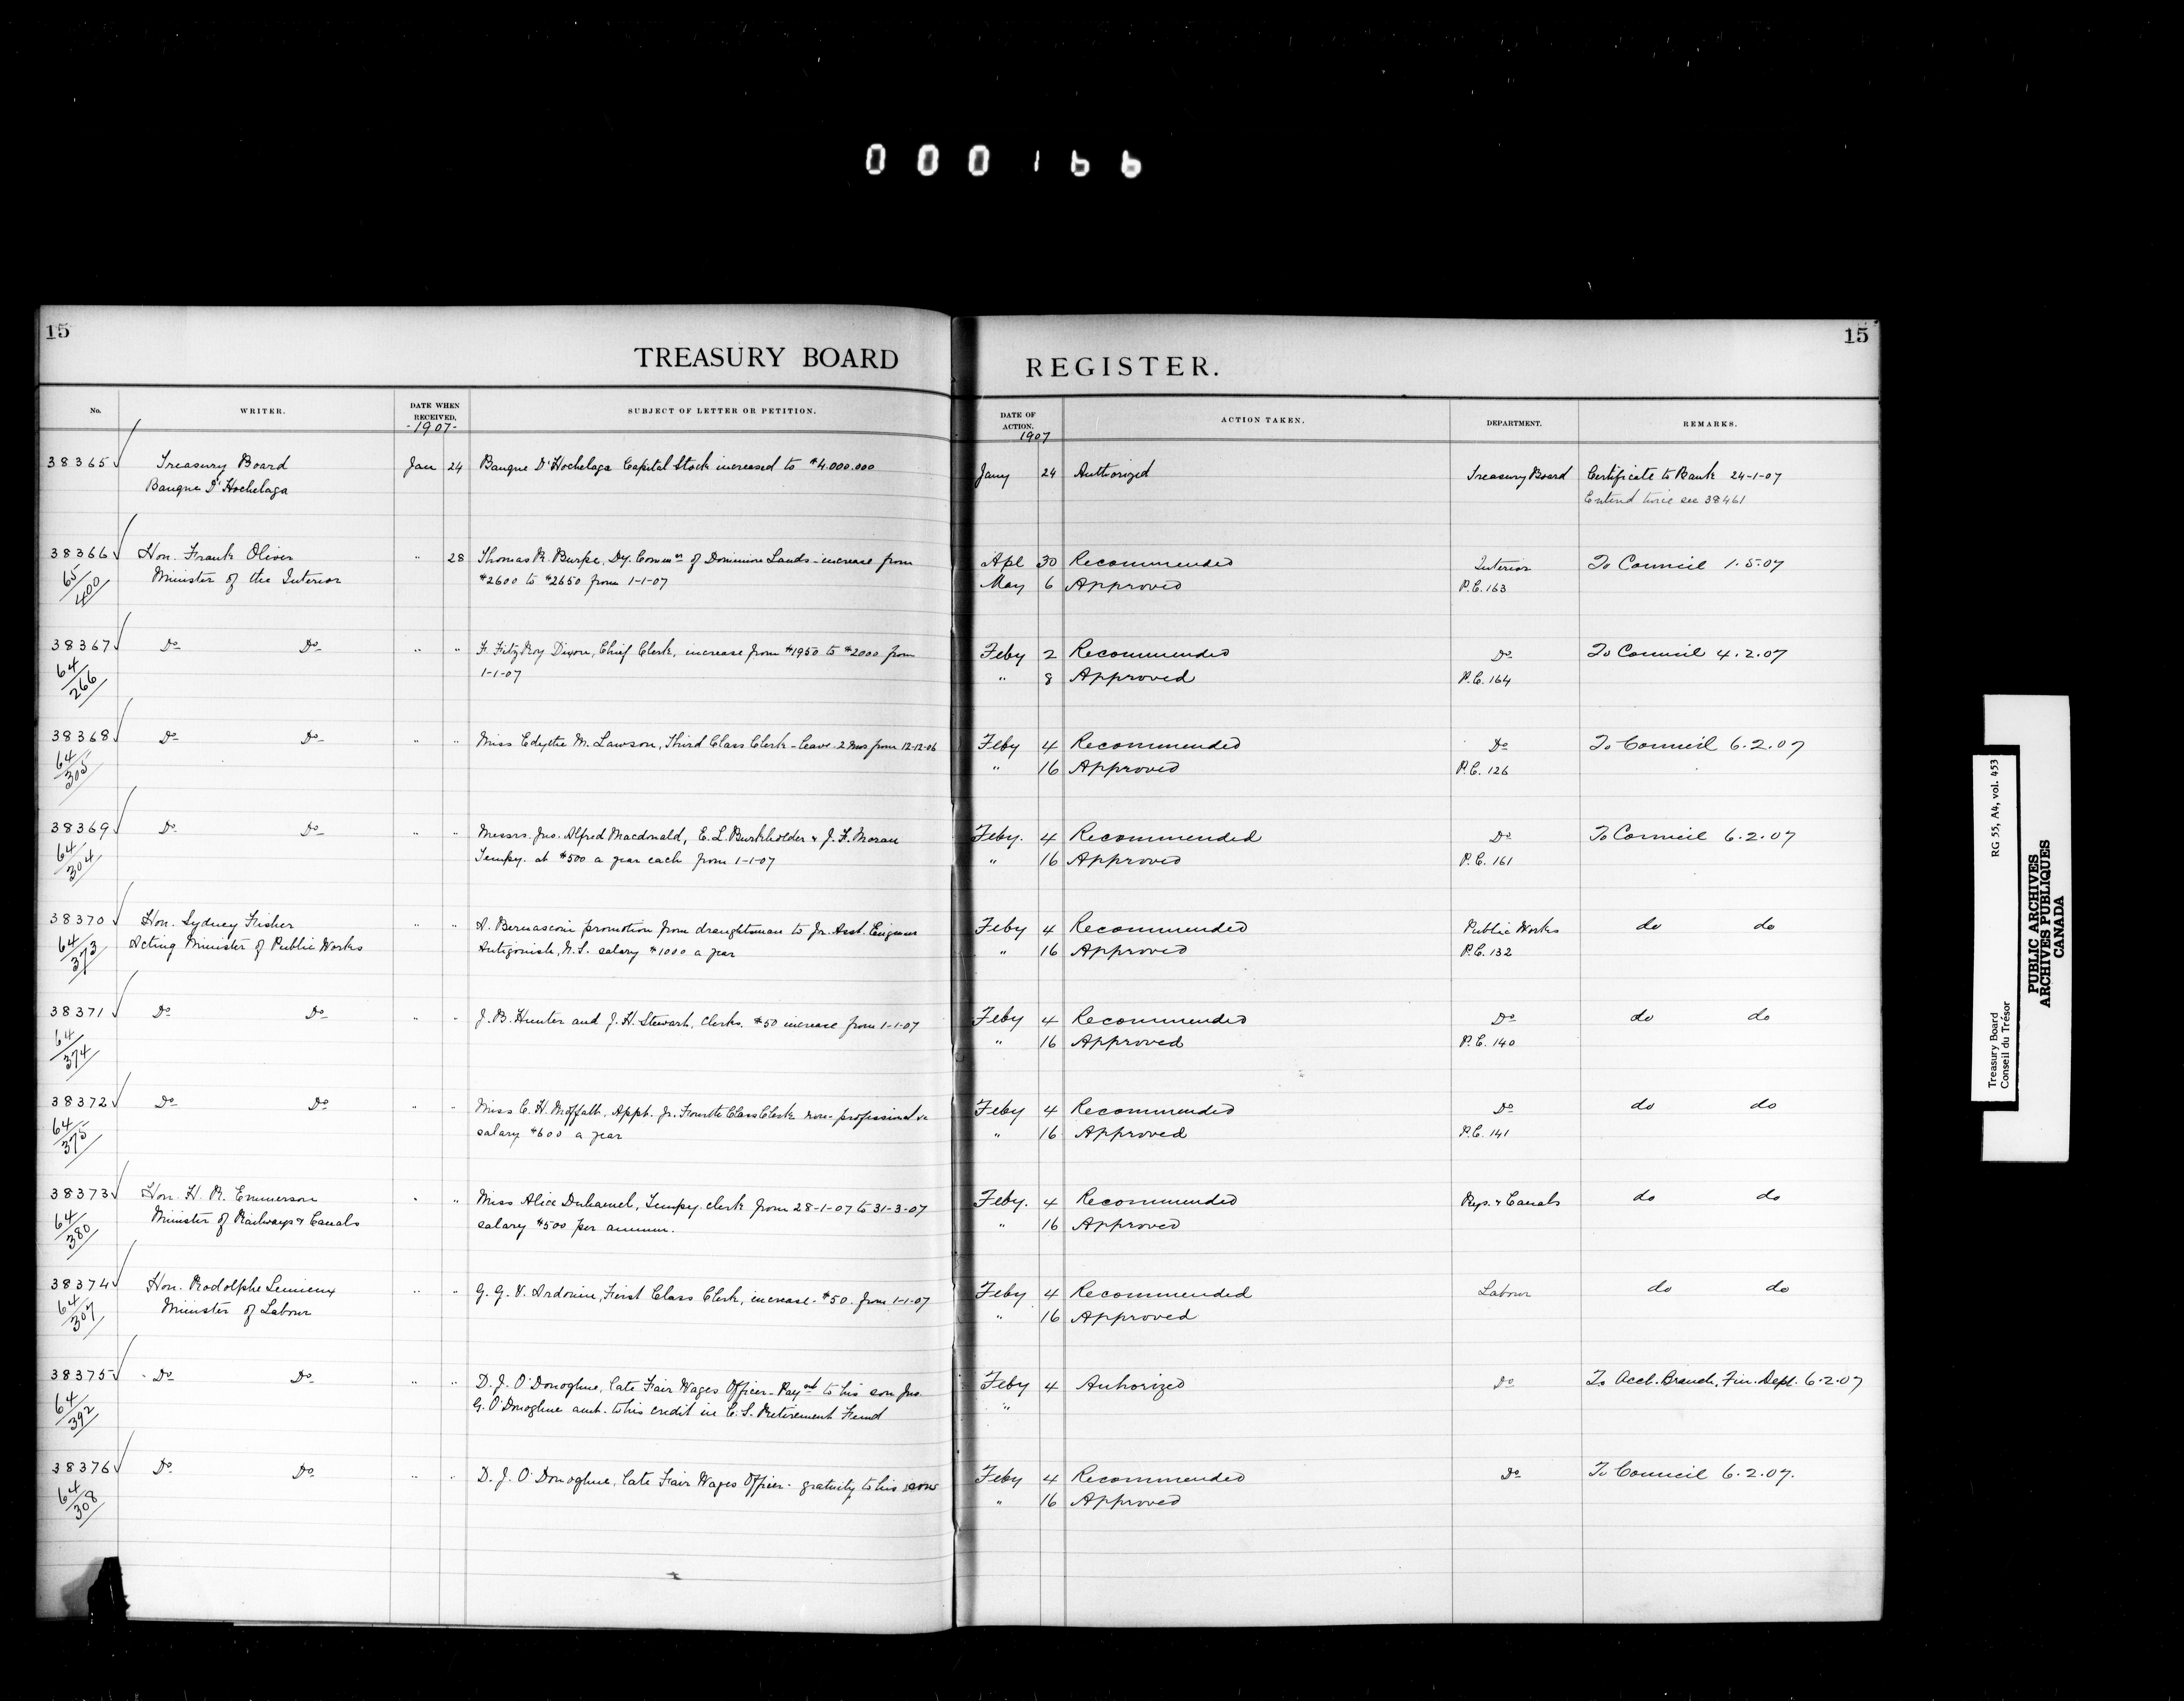 000166
15
15
TREASURY BOARD REGISTER.
No. WRITER. DATE WHEN RECEIVED. SUBJECT OF LETTER OR PETITION. DATE OF ACTION. ACTION TAKEN. DEPARTMENT. REMARKS.
-1907- 1907
38365 Treasury Board Jan 24 Banque D'Hochelaga Capital Stock increased to $4.000.000 Jany 24 Authorized Treasury Board Certificate to Bank 24-1-07
Banque D'Hochelaga Entered twice see 38461
38366 Hon. Frank Oliver " 28 Thomas R. Burpe, Dy. Commr of Dominion Lands - increase from Apl 30 Recommended Interior To Council 1.5.07
65/400 Minister of the Interior $2600 to $2650 from 1-1-07 May 6 Approved P.C. 163
38367 Do Do " " F. FitzRoy Dixon, Chief Clerk, increase from $1950 to $2000 from Feby 2 Recommended Do To Council 4.2.07
64/266 1-1-07 " 8 Approved P.C. 164
38368 Do Do " " Miss Edythe M. Lawson, Third Class Clerk - leave - 2 mos from 12-12-06 Feby 4 Recommended Do To Council 6.2.07
64/305 " 16 Approved P.C. 126
38369 Do Do " " Messrs. Jno. Alfred Macdonald, E.L. Burkholder & J.F. Moran Feby. 4 Recommended Do To Council 6.2.07
64/304 Tempy. at $500 a year each from 1-1-07 " 16 Approved P.C. 161
38370 Hon. Sydney Fisher " " A. Bernasconi promotion from draughtsman to Jr. Asst. Engineer Feby 4 Recommended Public Works do do
64/373 Acting Minister of Public Works Antigonish, N.S. salary $1000 a year " 16 Approved P.C. 132
38371 Do Do " " J.B. Hunter and J.H. Stewart, Clerks. $50 increase from 1-1-07 Feby 4 Recommended Do do do
64/374 " 16 Approved P.C. 140
38372 Do Do " " Miss C.H. Moffatt, Appt. Jr. Fourth Class Clerk non-professional Feby 4 Recommended Do do do
64/375 salary $600 a year " 16 Approved P.C. 141
38373 Hon. H.R. Emmerson " " Miss Alice Duhamel, Tempy. clerk from 28-1-07 to 31-3-07 Feby. 4 Recommended Rys. & Canals do do
64/380 Minister of Railways & Canals salary $500 per annum. " 16 Approved
38374 Hon. Rodolphe Lemieux " " G.G.V. Ardouin, First Class Clerk, increase - $50. from 1-1-07 Feby 4 Recommended Labour do do
64/307 Minister of Labour " 16 Approved
38375 Do Do " " D.J. O'Donoghue, late Fair Wages Officer - Payt to his son Jno. Feby 4 Auhorized Do To Acct. Branch, Fin. Dept. 6.2.07
64/392 G. O'Donoghue amt. to his credit in C.S. Retirement Fund "
38376 Do Do " " D.J. O'Donoghue, late Fair Wages Officer - gratuity to his sons Feby 4 Recommended Do To Council 6.2.07.
64/308 " 16 Approved
Treasury Board RG 55, A4, vol. 453
Conseil du Trésor
PUBLIC ARCHIVES
ARCHIVES PUBLIQUES
CANADA